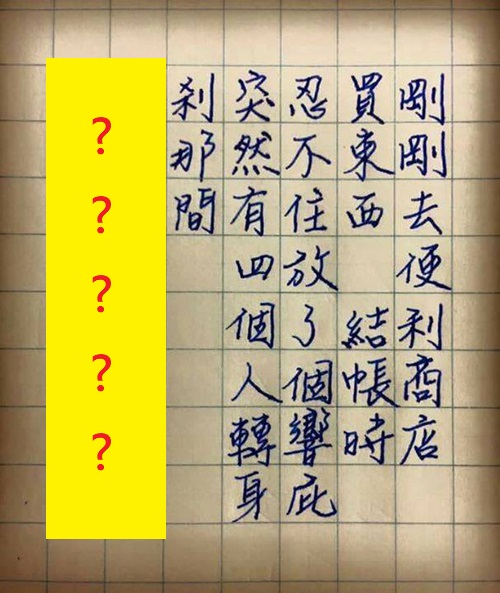 剛剛去便利商店
買東西 結帳時
忍不住放了個響屁
突然有四個人轉身
剎那間
?
?
?
?
?